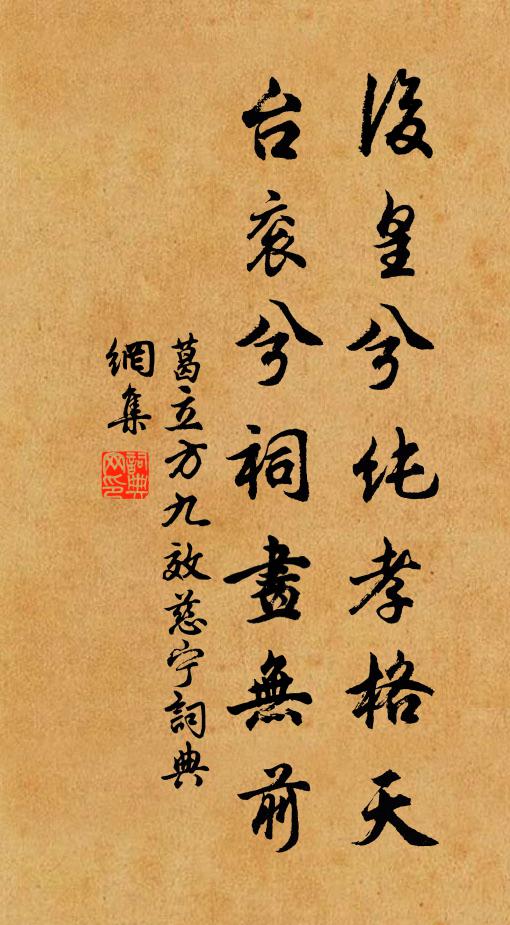 後皇兮纯孝格天
台衮兮祠畫無前
葛立方九效慈宁詞典
網集
詞典
网印